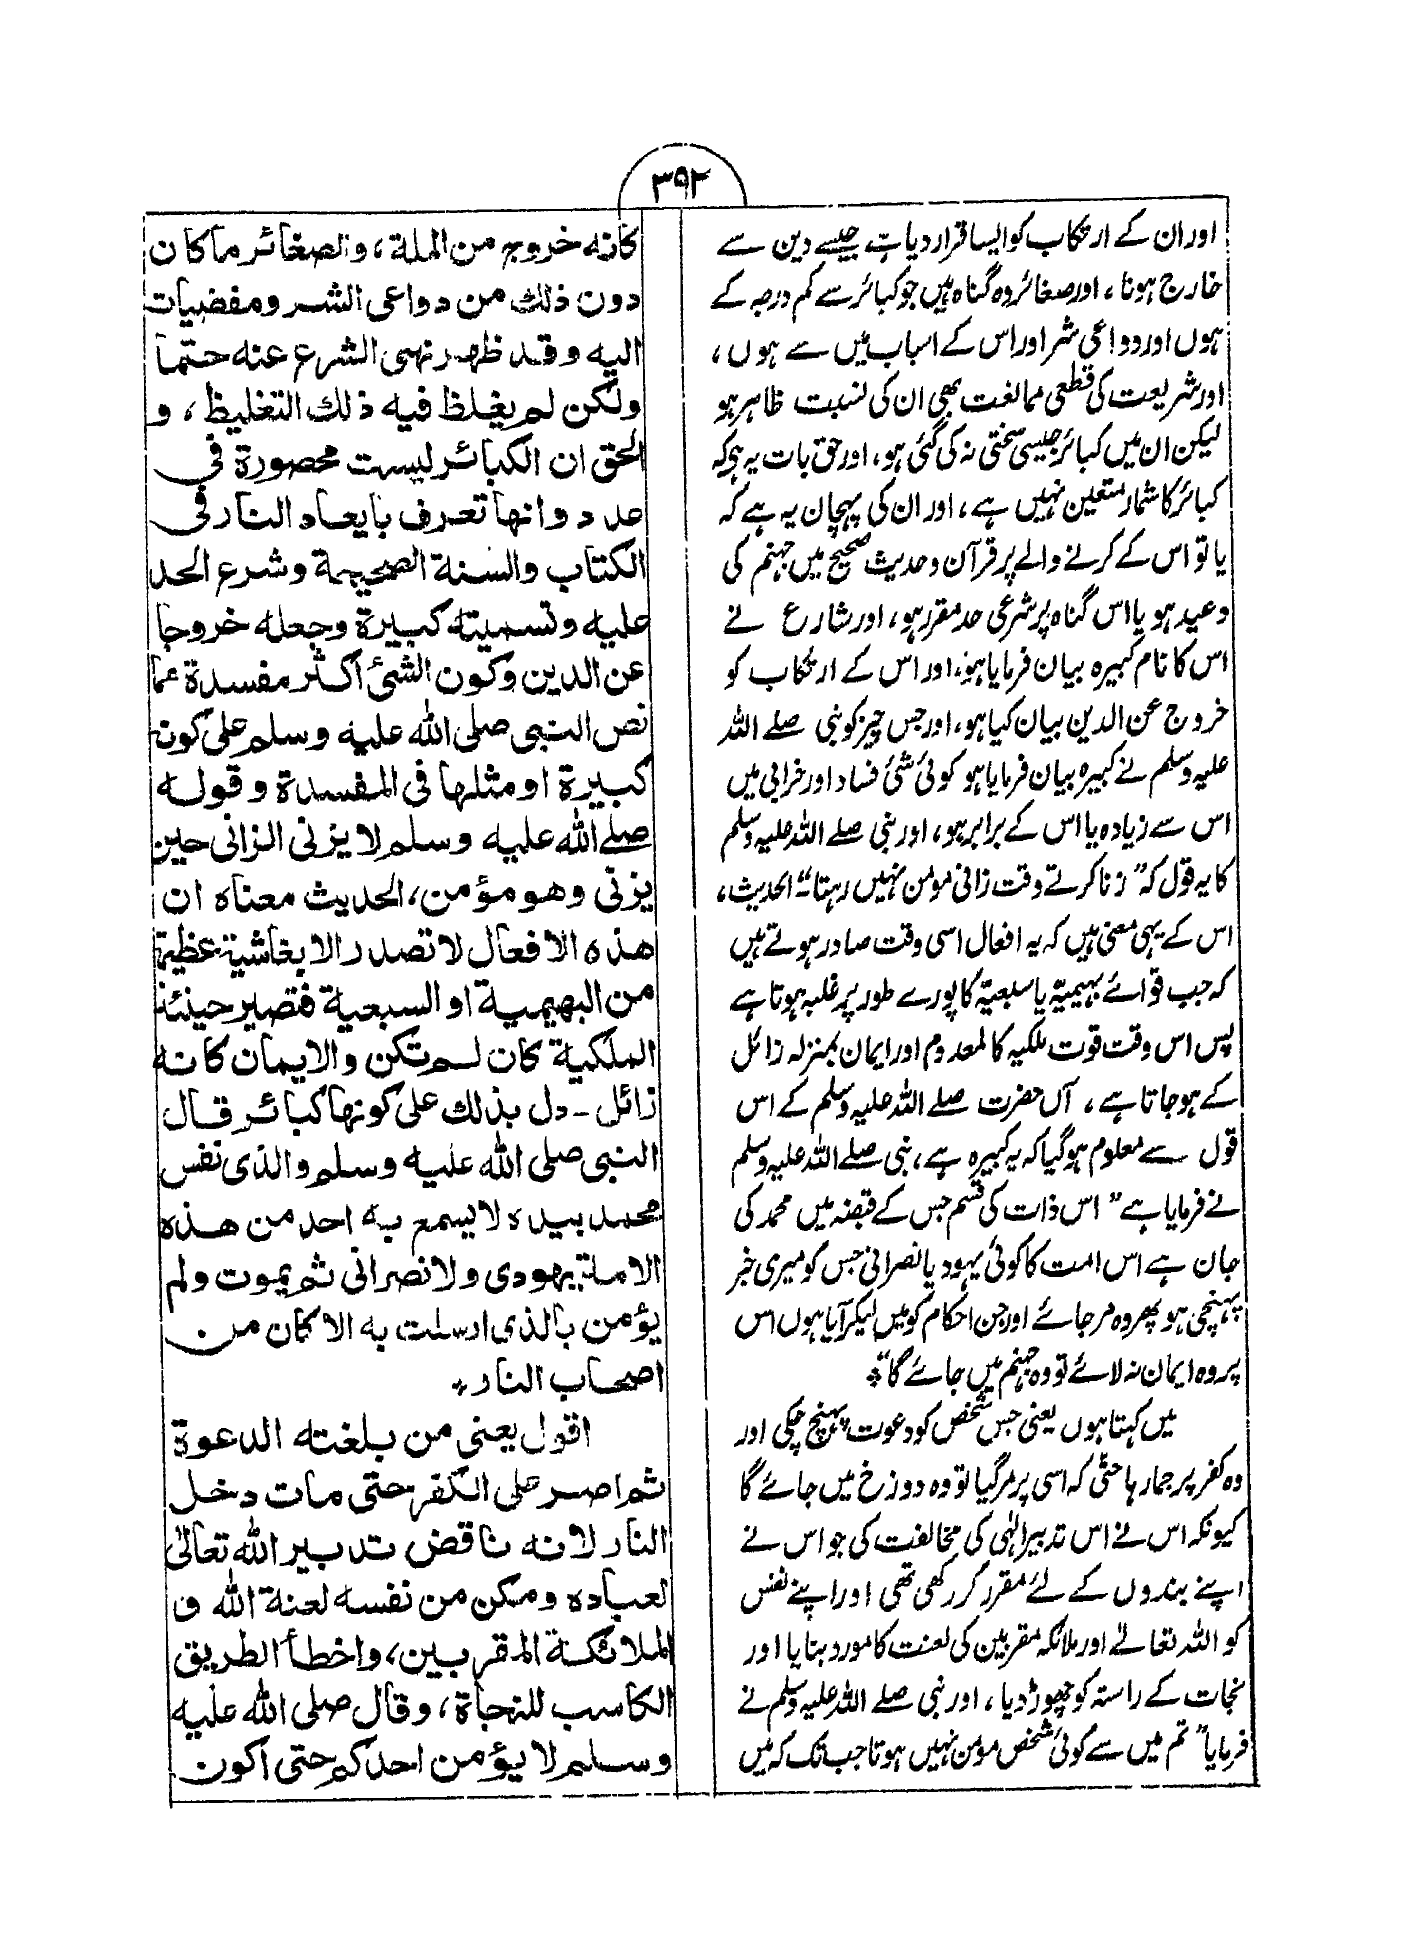 ۳۹۲
اور ان کے ارتکاب کو ایسا قرار دیا ہے جیسے دین سے
خارج ہونا، اور صغائر وہ گناہ ہیں جو کبائر سے کم درجہ کے
ہوں اور دواعی شر اور اس کے اسباب میں سے ہوں،
اور شریعت کی قطعی ممانعت بھی ان کی نسبت ظاہر ہو
لیکن ان میں کبائر جیسی سختی نہ کی گئی ہو، اور حق بات یہ ہے کہ
کبائر کا شمار متعین نہیں ہے، اور ان کی پہچان یہ ہے کہ
یا تو اس کے کرنے والے پر قرآن و حدیث صحیح میں جہنم کی
وعید ہو یا اس گناہ پر شرعی حد مقرر ہو، اور شارع نے
اس کا نام کبیرہ بیان فرمایا ہو، اور اس کے ارتکاب کو
خروج عن الدین بیان کیا ہو، اور جس چیز کو نبی صلے اللہ
علیہ وسلم نے کبیرہ بیان فرمایا ہو کوئی شئ فساد اور خرابی میں
اس سے زیادہ یا اس کے برابر ہو، اور نبی صلے اللہ علیہ وسلم
کا یہ قول کہ" زنا کرتے وقت زانی مومن نہیں رہتا"۔ الحدیث،
اس کے یہی معنی ہیں کہ یہ افعال اسی وقت صادر ہوتے ہیں
کہ جب قوائے بہیمیّہ یا سبعیّہ کا پورے طور پر غلبہ ہوتا ہے
پس اس وقت قوت ملکیہ کالمعدوم اور ایمان بمنزلہ زائل
کے ہو جاتا ہے، آں حضرت صلے اللہ علیہ وسلم کے اس
قول سے معلوم ہوگیا کہ یہ کبیرہ ہے، نبی صلے اللہ علیہ وسلم
نے فرمایا ہے" اس ذات کی قسم جس کے قبضہ میں محمد کی
جان ہے اس امت کا کوئی یہود یا نصرانی جس کو میری خبر
پہنچی ہو پھر وہ مر جائے اور جن احکام کو میں لیکر آیا ہوں اس
پر وہ ایمان نہ لائے تو وہ جہنم میں جائے گا"٭
میں کہتا ہوں یعنی جس شخص کو دعوت پہنچ چکی اور
وہ کفر پر جما رہا حتّٰی کہ اسی پر مر گیا تو وہ دوزخ میں جائے گا
کیونکہ اس نے اس تدبیر الٰہی کی مخالفت کی جو اس نے
اپنے بندوں کے لئے مقرر کر رکھی تھی اور اپنے نفس
کو اللہ تعالےٰ اور ملائکہ مقربین کی لعنت کا مورد بنایا اور
نجات کے راستہ کو چھوڑ دیا، اور نبی صلے اللہ علیہ وسلم نے
فرمایا" تم میں سے کوئی شخص مومن نہیں ہوتا جب تک کہ میں
کانه خروج من الملة، والصغائر ماکان
دون ذلك من دواعی الشر ومفضیات
الیه وقد ظهر نهی الشرع عنه حتما
ولکن لم یغلظ فیه ذلك التغلیظ، و
الحق ان الکبائر لیست محصورة فی
عدد وانها تعرف بایعاد النار فی
الکتاب والسنة الصحیحة وشرع الحد
علیه وتسمیته کبیرة وجعله خروجا
عن الدین وکون الشئ اکثر مفسدة مما
نص النبی صلی الله علیه وسلم علی کونه
کبیرة او مثلها فی المفسدة وقوله
صلے الله علیه وسلم لا یزنی الزانی حین
یزنی وهو مؤمن، الحدیث معناه ان
هذه الافعال لا تصدر الا بغاشیة عظیمة
من البهیمیة او السبعیة فتصیر حینئذ
الملکیة کان لم تکن والایمان کانه
زائل ـ دل بذلك علی کونها کبائر قال
النبی صلی الله علیه وسلم والذی نفس
محمد بیده لا یسمع به احد من هذه
الامة یهودی ولا نصرانی ثم یموت ولم
یؤمن بالذی ارسلت به الا کان من
اصحاب النار٭
اقول یعنی من بلغته الدعوة
ثم اصر علی الکفر حتی مات دخل
النار لانه ناقض تدبیر الله تعالیٰ
لعباده ومکن من نفسه لعنة الله و
الملائکة المقربین، واخطأ الطریق
الکاسب للنجاة، وقال صلی الله علیه
وسلم لا یؤمن احدکم حتی اکون